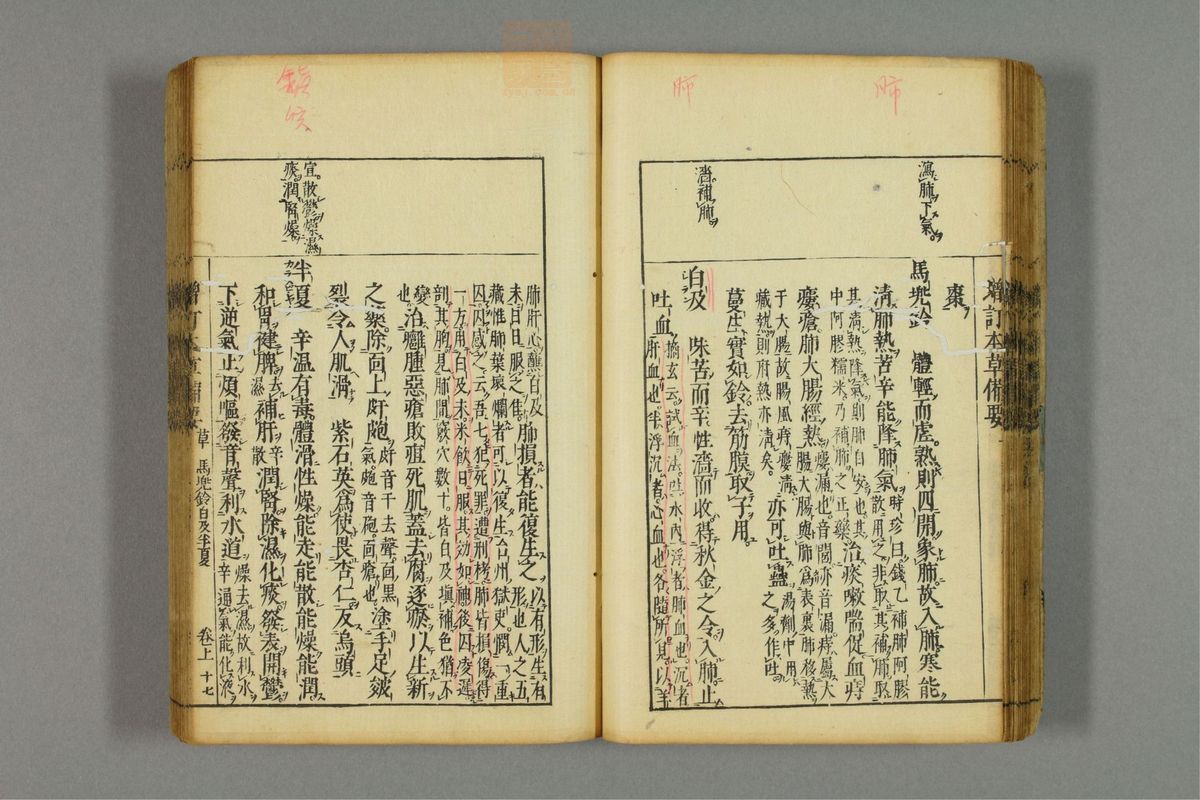 肺
肺
瀉肺下氣
濇補肺
增訂本草備要
棗
馬兜鈴　體輕而虛熟則四開象肺故入肺寒能
清肺熱苦辛能降肺氣時珍曰錢乙補肺阿膠
散用之非取其補肺取
其清熱降氣則肺自安也其
中阿膠糯米乃補肺之正藥治痰嗽喘促血痔
瘻瘡肺大腸經熱瘻漏也音閭亦音漏痔屬大
腸大腸與肺爲表裏肺移熱
于大腸故腸風痔瘻清
臟熱則府熱亦清矣亦可吐蠱湯劑中用
之多作吐
蔓生實如鈴去筋膜取子用
白及　味苦而辛性濇而收得秋金之令入肺止
吐血摘玄云試血法吐水內浮者肺血也沉者
肝血也半浮沉者心血也各隨所見以羊
肺肝心蘸白及
末日日服之佳肺損者能復生之以有形生有
形也人之五
臟惟肺葉壞爛者可以復生台州獄吏憫一重
囚囚感之云吾七犯死罪遭刑拷肺皆損傷得
一方用白及末米飲日服其効如神後囚凌遲
剖其胸見肺間竅穴數十皆白及填補色猶不
變
也治癰腫惡瘡敗疽死肌蓋去腐逐瘀以生新
之藥除面上皯皰皯音干去聲面黑
氣皰音砲面瘡也塗手足皴
裂令人肌滑　紫石英爲使畏杏仁反烏頭
宜散鬱燥濕
痰潤腎燥
半夏　辛温有毒體滑性燥能走能散能燥能潤
和胃健脾去濕補肝辛散潤腎除濕化痰發表開鬱
下逆氣止煩嘔發音聲利水道燥去濕故利水
辛通氣能化液
草　馬兜鈴白及半夏　卷上　十七